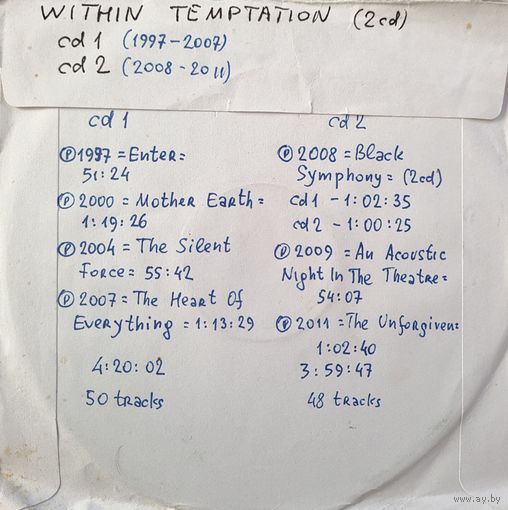 WITHIN TEMPTATION (2cd)
cd 1 (1997-2007)
cd 2 (2008-2011)
cd 1
Ⓟ1997 = Enter =
51:24
Ⓟ2000 = Mother Earth =
1:19:26
Ⓟ2004 = The Silent
Force = 55:42
Ⓟ2007 = The Heart Of
Everything = 1:13:29
4:20:02
50 tracks
cd 2
Ⓟ2008 = Black
Symphony = (2cd)
cd 1 - 1:02:35
cd 2 - 1:00:25
Ⓟ2009 = An Acoustic
Night In The Theatre =
54:07
Ⓟ2011 = The Unforgiven =
1:02:40
3:59:47
48 tracks
www.ay.by